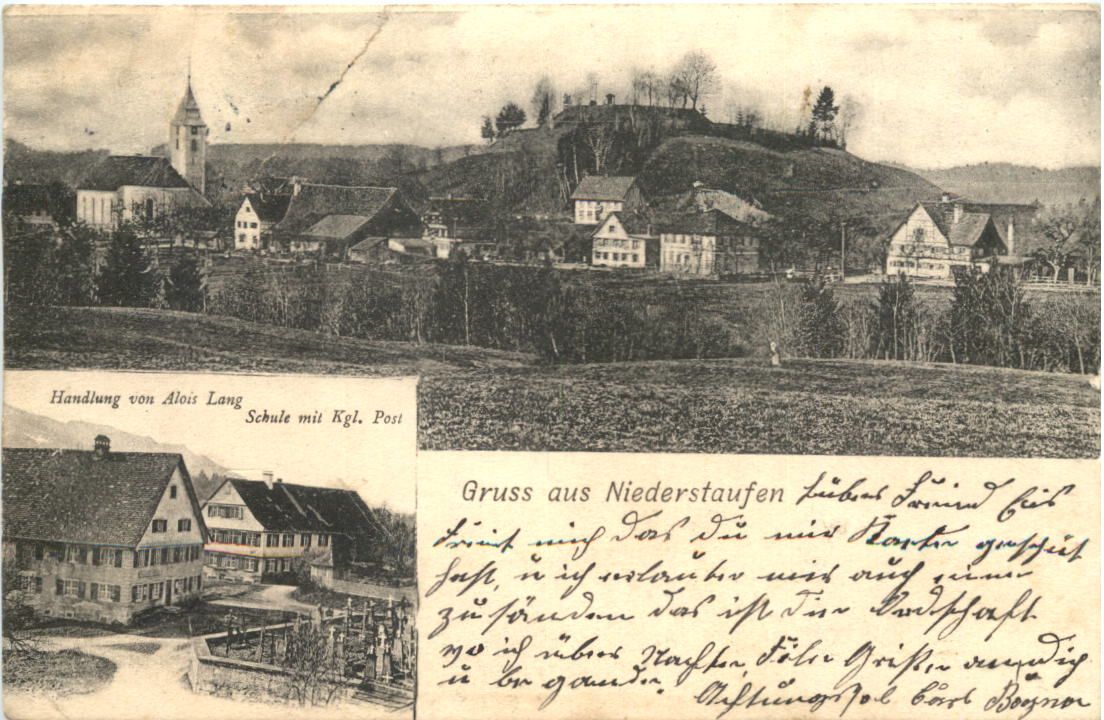 Handlung von Alois Lang
Schule mit Kgl. Post
Gruss aus Niederstaufen Lieber Freund Es
freut mich das du mir Karte geschükt
hast, u ich erlaube mir auch eine
zu sänden das ist die Ordschaft
wo ich über Nachten. Fiele Grüße an dich
u
Carl